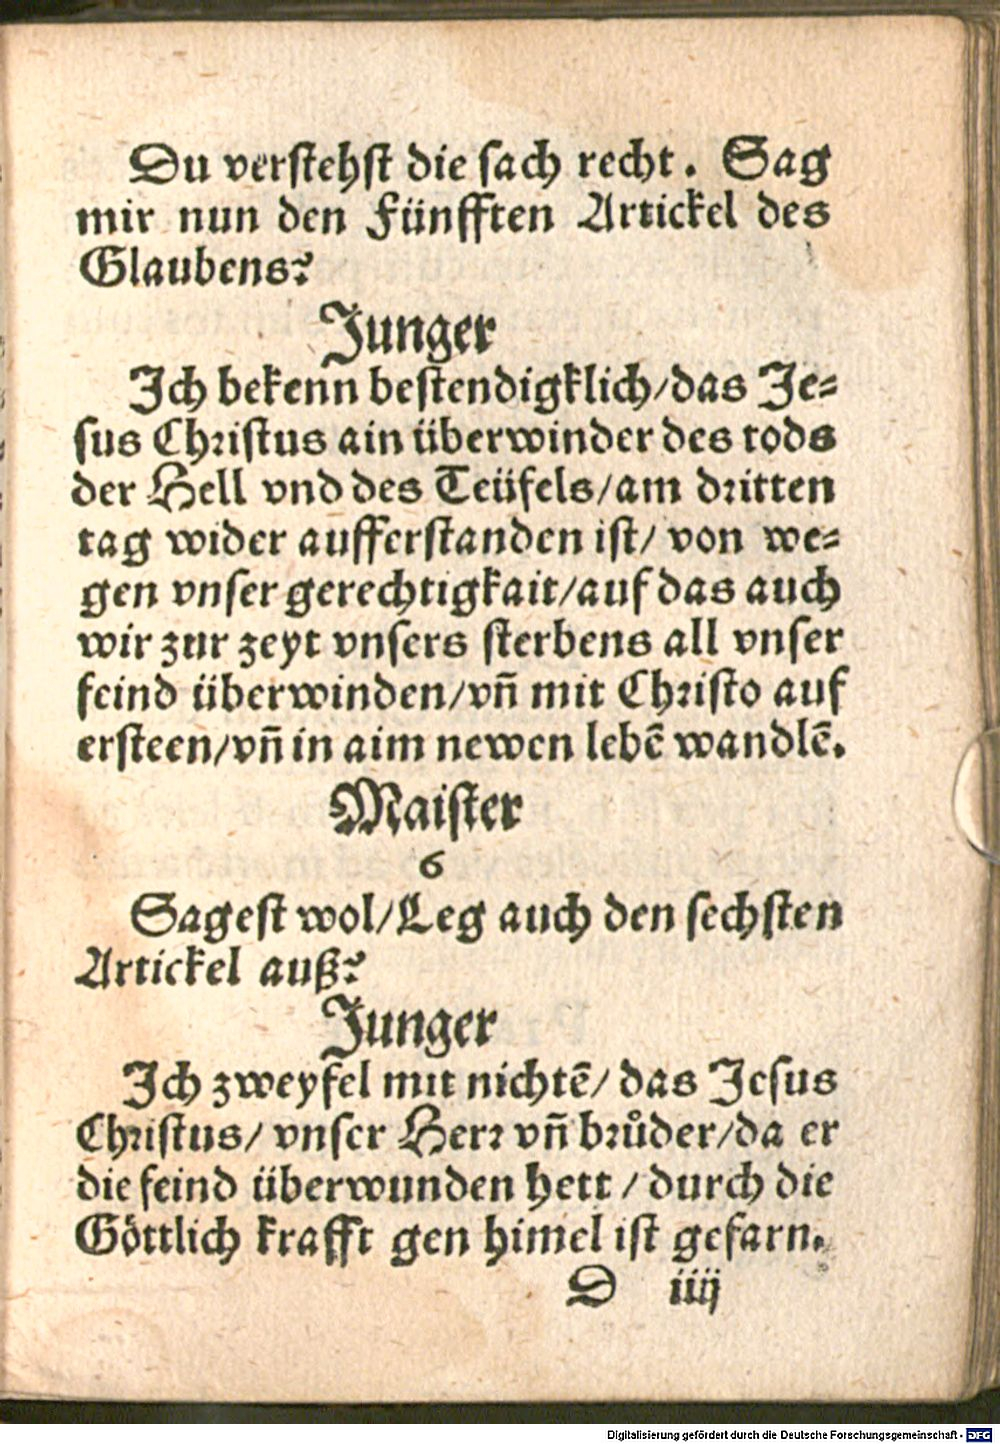 Du verstehst die sach recht. Sag
mir nun den Fünfften Artickel des
Glaubens?
Junger
Ich bekenn bestendigklich/das Je-
sus Christus ain überwinder des tods
der Hell vnd des Teüfels/am dritten
tag wider aufferstanden ist/ von we-
gen vnser gerechtigkait/auf das auch
wir zur zeyt vnsers sterbens all vnser
feind überwinden/vn̄ mit Christo auf
ersteen/vn̄ in aim newen lebē wandlē.
Maister
6
Sagest wol/Leg auch den sechsten
Artickel auß?
Junger
Ich zweyfel mit nichtē/ das Jesus
Christus/ vnser Herr vn̄ brůder/da er
die feind überwunden hett / durch die
Göttlich krafft gen himel ist gefarn.
D iiij
Digitalisierung gefördert durch die Deutsche Forschungsgemeinschaft - DFG